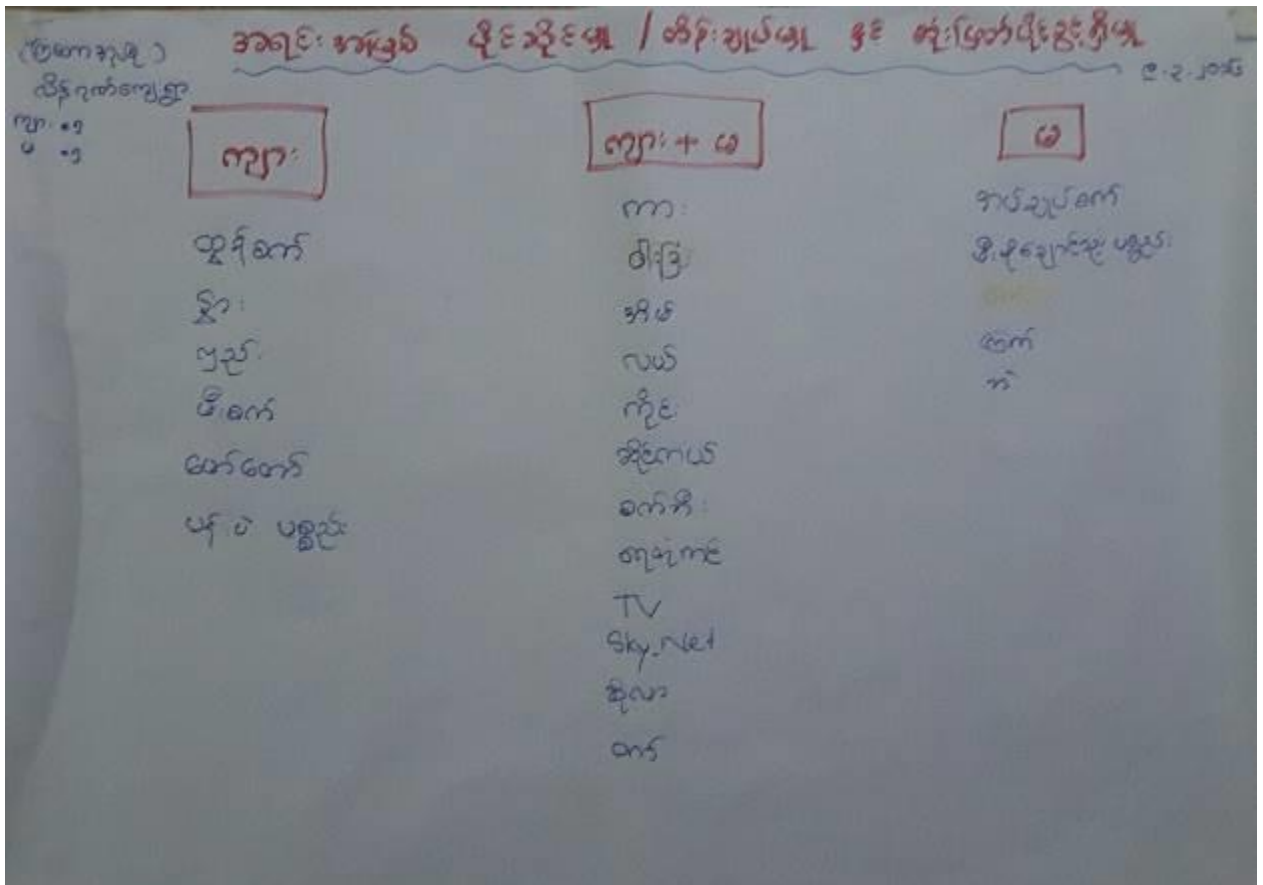 အရင်းအမြစ် ပိုင်ဆိုင်မှု / ထိန်းချုပ်မှု နှင့် ဆုံးဖြတ်ပိုင်ခွင့်ရှိမှု
ကျား
ထွန်စက်
နွား
လှည်း
မီးစက်
မော်တော်
ပန်းပဲ ပစ္စည်း
ကျား + မ
ကား
ဝါးခြံ
အိမ်
လယ်
ကိုင်း
ဆိုင်ကယ်
စက်ဘီး
ရေဆုံကင်
TV
Sky-Net
ဆိုလာ
ဝက်
မ
အပ်ချုပ်စက်
မီးဖိုချောင်သုံး ပစ္စည်း
ကြက်
ဘဲ